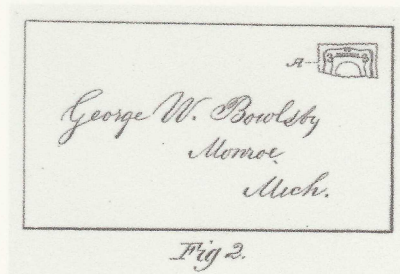 A
George W. Bowlsby
Monroe
Mich.
Fig 2.